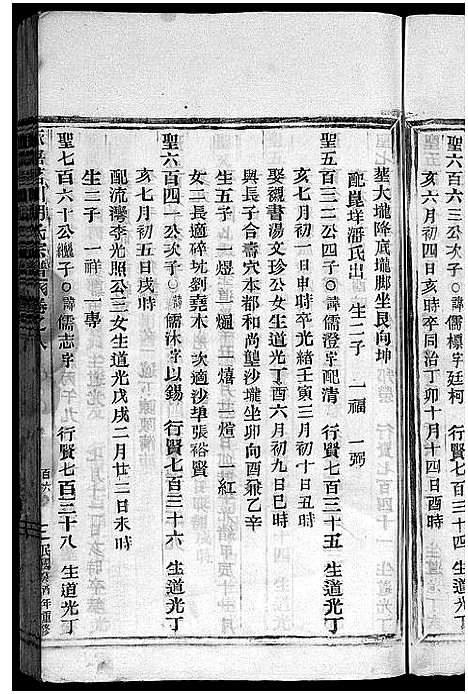 聖六百六三公次子○諱儒檙字廷柯
亥六月初四日亥時卒同治丁卯十月十四日酉時
塟大壠降底壠脚坐艮向坤
配崑垟潘氏出　生二子　一福　一弼
聖五百三二公四子○諱儒澄字配清　行賢七百三十五　生道光丁
亥七月初一日申時卒光緒壬寅三月初十日丑時
娶觀書湯文珍公女生道光丁酉六月初九日巳時
與長子合壽穴本都和尚壟沙壠坐卯向酉兼乙辛
生五子　一煜　一煺　一熺　一煊　一紅
女二長適碎坑劉堯木　次適沙埠張裕賢
聖六百四一公次子○諱儒沐字以錫　行賢七百三十六　生道光丁
亥七月初五日戌時
配流灣李光照公三女生道光戊戌二月廿二日未時
生二子　一祥　一專
聖七百六十公繼子○諱儒志字　行賢七百三十八　生道光丁
百六
民國癸酉年重修